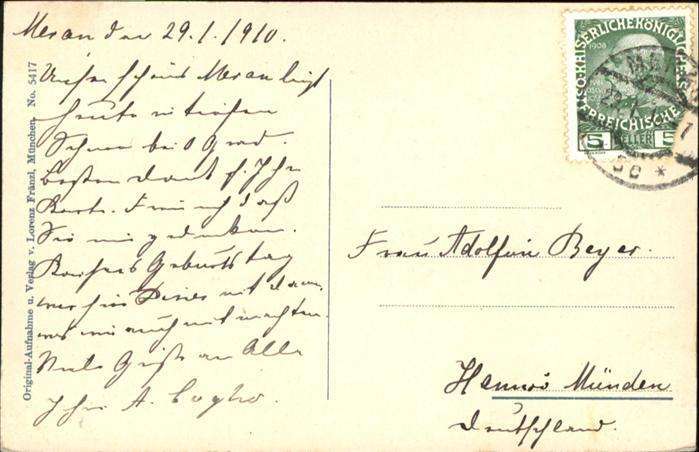 Meran den 29.1.1910.
Unser schönes Meran liegt
heute in tiefem
Schnee bei 0 Grad.
Besten Dank f. Ihre
Karte. Freu mich daß
Sie mir gedenken.
Kaisers Geburtstag
war hier
was wir auch mit machten.
Viele Grüße an Alle
Ihr A.
Original-Aufnahme u. Verlag v. Lorenz Fränzl, München. No. 5417
KAISERLICHE KÖNIGLICHE
ÖSTERREICHISCHE
1908
5 HELLER 5
Frau Adolfine Beyer.
Hannov Münden
Deutschland.